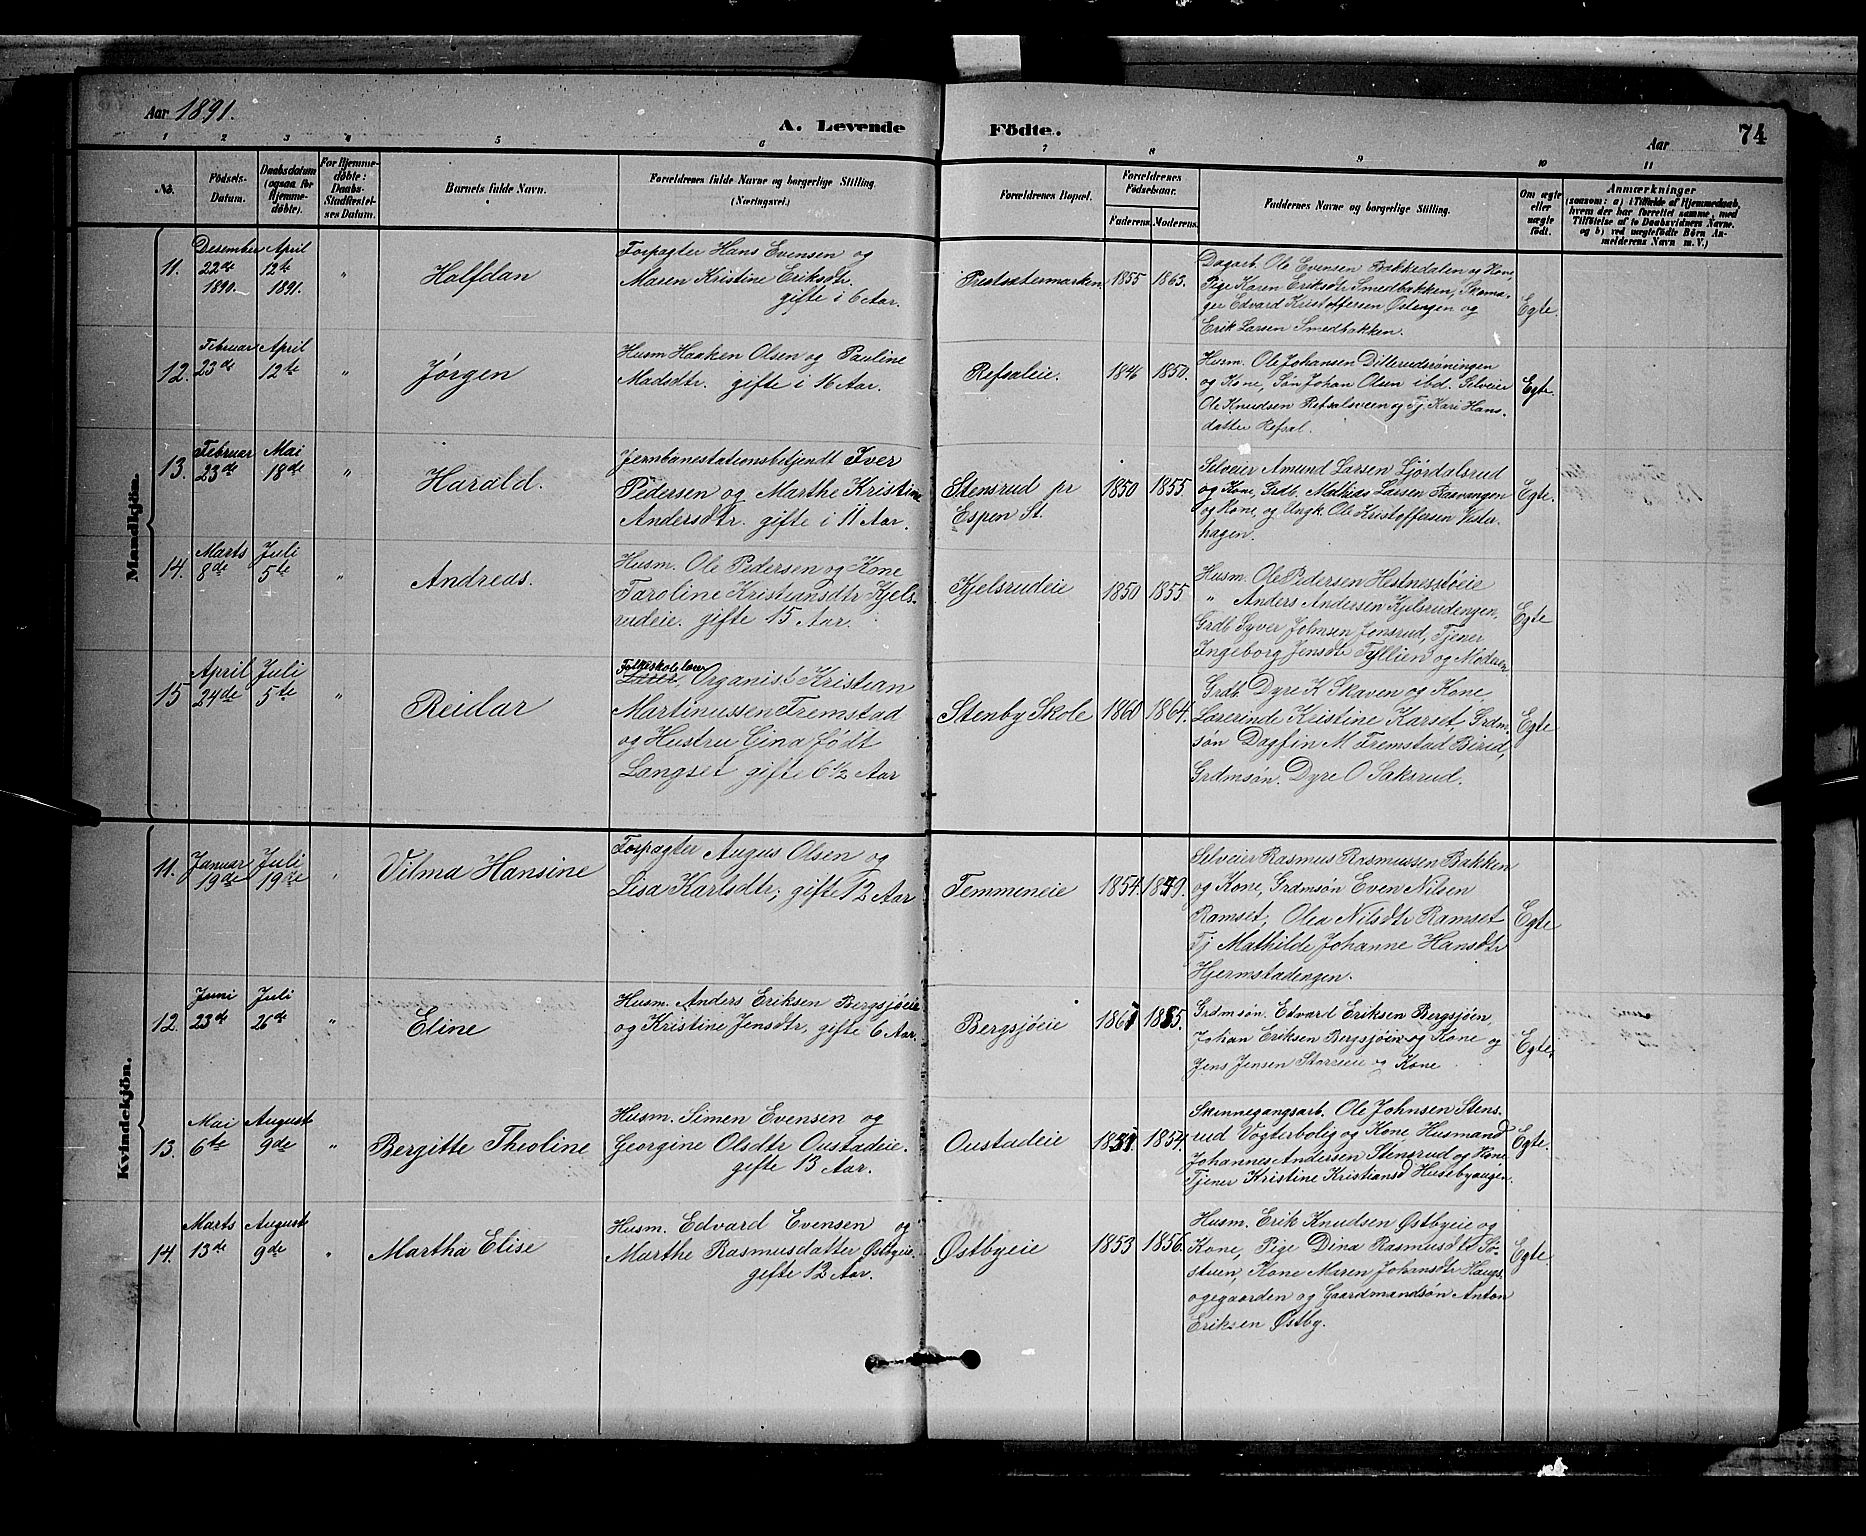 Aar 1891.
A. Levende Födte.
Aar
74
1 2 3 4 5 6 7 8 9 10 11
No.
Födsels-
Datum.
Daabsdatum
(ogsaa for
Hjemme-
döbte).
For Hjemme-
döbte:
Daabs-
Stadfæstel-
ses Datum.
Barnets fulde Navn.
Forældrenes fulde Navne og borgerlige Stilling.
(Næringsvei.)
Forældrenes Bopæl.
Forældrenes
Födselsaar.
Faderens. Moderens.
Faddernes Navne og borgerlige Stilling.
Om ægte
eller
uægte
født.
Anmærkninger
(saasom: a) i Tilfælde af Hjemmedaab,
hvem der har forrettet samme, med
Tilföielse af to Daabsvidners Navne.
og b) ved uægtefödte Börn An-
melderens Navn m. V.)
Mandkjön.
11.
Desember
22de
1890.
April
12te
1891.
"
Halfdan
Forpagter Hans Evensen og
Maren Kristine Eriksdtr.
gifte i 6 Aar.
Prestsætermarken
1855 1863.
Dagarb. Ole Evensen Bakkedalen og Kone,
Pige Karen Eriksdtr Smedbakken, Skoma-
ger Edvard Kristoffersen Østengen og
Erik Larsen Smedbakken.
Egte.
12.
Februar
23de
April
12te
"
Jørgen
Husm Haaken Olsen og Pauline
Madsdtr. gifte i 16 Aar.
Refsaleie.
1846 1850.
Husm. Ole Johansen Dillerudsrøningen
og Kone, Søn Johan Olsen ibd. Selveier
Ole Knudsen Refsalsveen og Tj. Kari Hans-
datter Refsal.
Egte.
13.
Februar
23de
Mai
18de
"
Harald.
Jernbanestationsbetjendt Iver
Pedersen og Marthe Kristine
Andersdtr. gifte i 11 Aar.
Stensrud pr
Espen St.
1850 1855.
Selveier Amund Larsen Ljørdalsrud
og Kone, Grdb. Mathias Larsen Rasvangen
og Kone, og Ungk. Ole Kristoffersen Vester-
hagen.
Egte.
14.
Marts
8de
Juli
5te
"
Andreas.
Husm. Ole Pedersen og Kone
Karoline Kristiansdtr Kjels-
rudeie. gifte 15 Aar.
Kjelsrudeie
1850 1855
Husm. Ole Pedersen Hestnesstøeie
" Anders Andersen Kjelsrudengen,
Grdb Syver Johnsen Jonsrud, Tjener
Ingeborg Jensdtr Tyllien og Moderen
Egte
15
April
24de
Juli
5te
"
Reidar
Folkeskolelær
Organist Kristian
Martinussen Fremstad
og Hustru Gina født
Langset gifte 6 1/2 Aar
Stenby Skole
1860 1864.
Grdb. Dyre K Skaven og Kone
Lærerinde Kristine Karset, Grdm-
søn Dagfin M Fremstad Birid,
Grdmsøn. Dyre O Saksrud.
Egte
Kvindekjön.
11.
Januar
19de
Juli
19de
"
Vilma Hansine
Forpagter Augus Olsen og
Lisa Karlsdtr; gifte 12 Aar
Femmeneie
1854. 1849.
Selveier Rasmus Rasmussen Bakken
og Kone, Grdmsøn Even Nilsen
Ramset, Olea Nilsdtr Ramset
Tj Mathilde Johanne Hansdtr
Hjermstadengen.
Egte
12.
Juni
23de
Juli
26de
"
Eline
Husm. Anders Eriksen Bergsjøeie
og Kristine Jensdtr, gifte 6 Aar.
Bergsjøeie
1861 1865.
Grdmsøn. Edvard Eriksen Bergsjøen,
Johan Eriksen Bergsjøen og Kone og
Jens Jensen Storreeie og Kone
Egte.
13.
Mai
6te
Auguste
9de
"
Bergitte Theoline
Husm. Simen Evensen og
Georgine Olsdtr Oustadeie.
gifte 13 Aar.
Oustadeie
1851 1854.
Skinnegangsarb. Ole Johnsen Stens-
rud Vogterbolig og Kone, Husmand
Johannes Andersen Stensrud og Kone
Tjener Kristine Kristiansd Husebyaugen.
Egte.
14.
Marts
13de
Auguste
9de
"
Martha Elise
Husm. Edvard Evensen og
Marthe Rasmusdatter Østbyeie.
gifte 12 Aar.
Østbyeie
1853 1856.
Husm. Erik Knudsen Østbyeie og
Kone, Pige Dina Rasmusdtr Sø-
stuen, Kone Maren Johansdtr Haugs-
ogegaarden og Gaardmandsøn Anton
Eriksen Østby.
Egte.